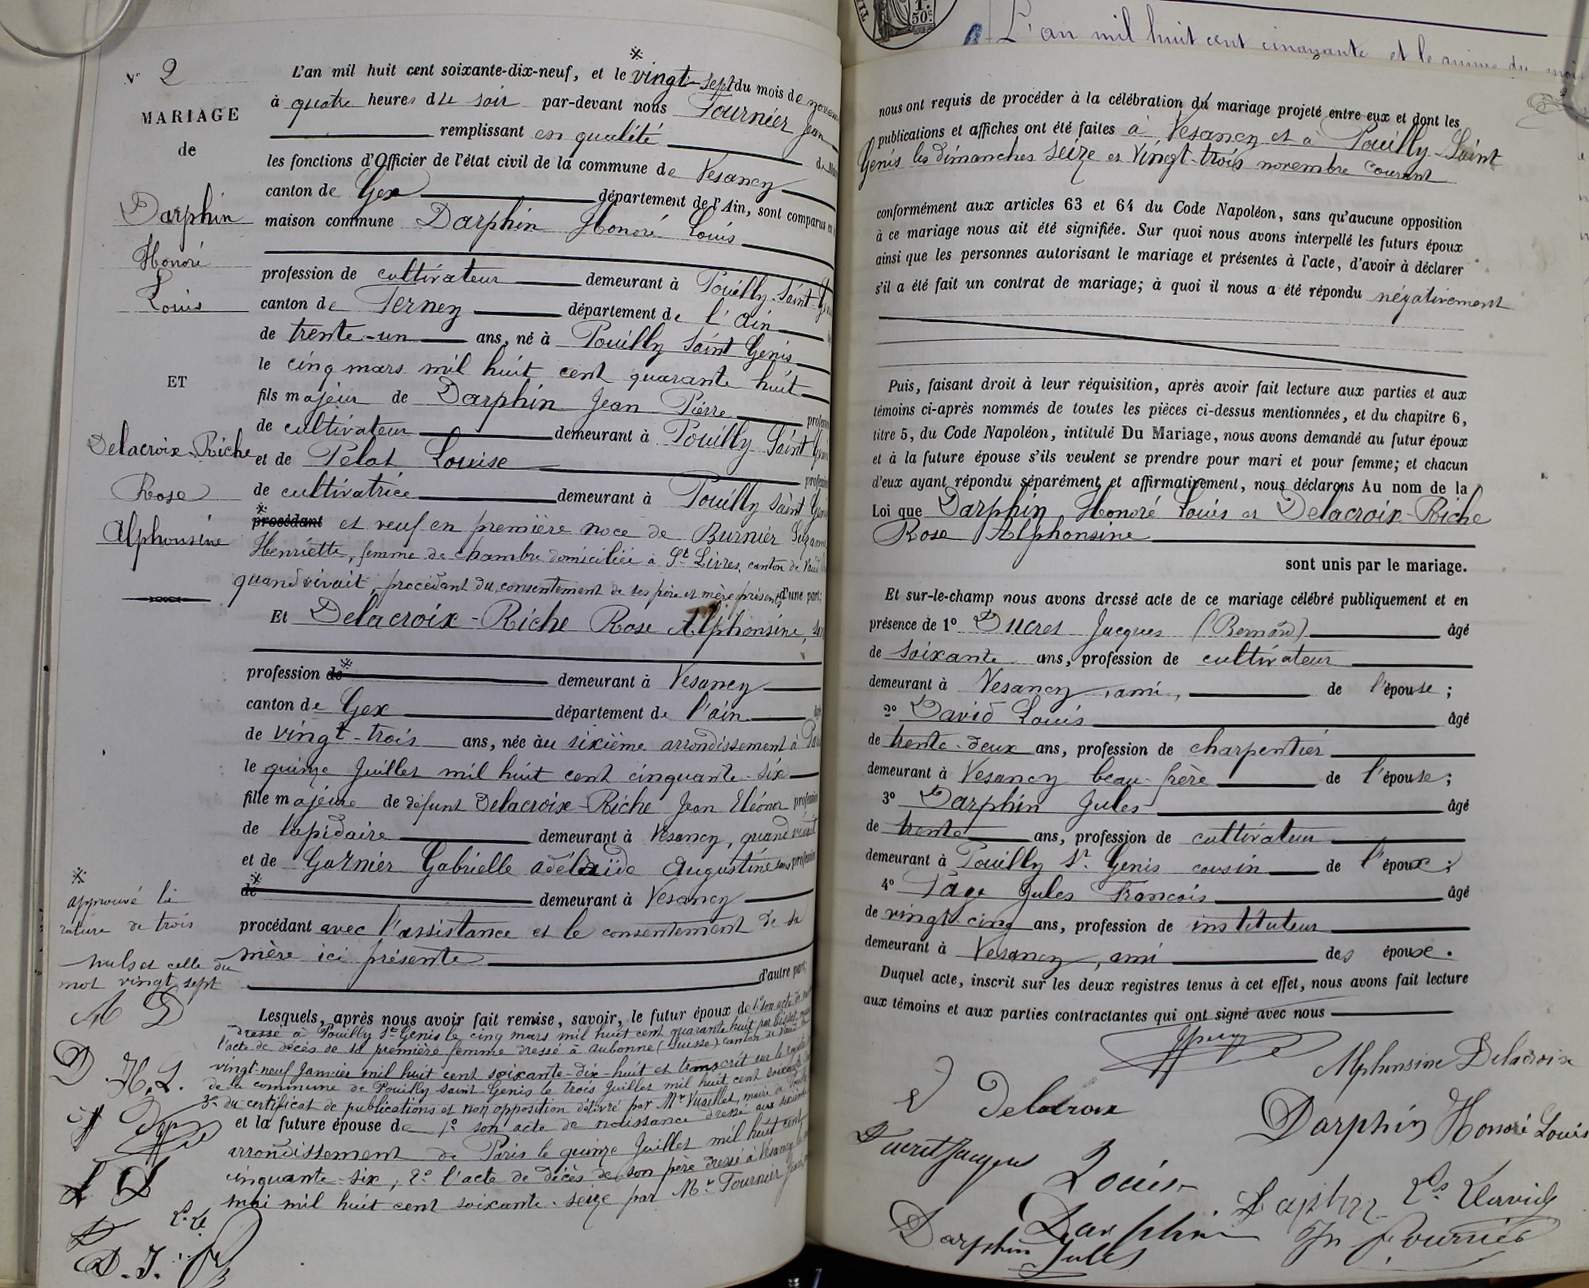 N° 2
MARIAGE
de
Darphin
Honoré
Louis
ET
Delacroix-Riche
Rose
Alphonsine
L'an mil huit cent soixante-dix-neuf, et le vingt-sept du mois de
à quatre heures du soir par-devant nous Fournier Jean
remplissant en qualité
les fonctions d'Officier de l'état civil de la commune de Vesancy
canton de Gex département de l'Ain, sont comparus
maison commune Darphin Honoré Louis
profession de cultivateur demeurant à Pouilly-Saint-
canton de Ferney département de l'ain
de trente-un ans, né à Pouilly Saint Genis
le cinq mars mil huit cent quarante huit
fils majeur de Darphin Jean Pierre
de cultivateur demeurant à Pouilly Saint
et de Pelat Louise
de cultivatrice demeurant à Pouilly Saint
procédant et veuf en première noce de Burnier
Henriette, femme de chambre domiciliée à St Livres, canton de Vaud
quand vivait, procédant du consentement de ses père et mère présents d'une part;
Et Delacroix-Riche Rose Alphonsine,
profession de demeurant à Vesancy
canton de Gex département de l'ain
de vingt-trois ans, née au sixième arrondissement à
le quinze Juillet mil huit cent cinquante-six
fille majeure de défunt Delacroix-Riche Jean Eléonor
de lapidaire demeurant à Vesancy, quand vivait
et de Garnier Gabrielle adélaïde Augustine sans
de demeurant à Vesancy
procédant avec l'assistance et le consentement de sa
mère ici présente
d'autre part,
approuvé la
rature de trois
nuls et celle du
mot vingt sept
Lesquels, après nous avoir fait remise, savoir, le futur époux de 1° son acte de
dressé à Pouilly St Genis le cinq mars mil huit cent quarante huit
l'acte de décès de sa première femme dressé à Aubonne (Suisse) canton de Vaud
vingt-neuf Janvier mil huit cent soixante-dix-huit et transcrit sur le
de la commune de Pouilly Saint Genis le trois Juillet mil huit cent soixante
3° du certificat de publications et non opposition délivré par Mr Vuaillet, maire
et la future épouse de 1° son acte de naissance dressé aux
arrondissement de Paris le quinze Juillet mil huit cent
cinquante-six, 2° l'acte de décès de son père dressé à Vesancy
mai mil huit cent soixante-seize par Mr Fournier
M D
D. H. L.
D. J.
L'an mil huit cent cinquante et le
nous ont requis de procéder à la célébration du mariage projeté entre eux et dont les
publications et affiches ont été faites à Vesancy et à Pouilly-Saint
Genis les dimanches seize et vingt-trois novembre courant
conformément aux articles 63 et 64 du Code Napoléon, sans qu'aucune opposition
à ce mariage nous ait été signifiée. Sur quoi nous avons interpellé les futurs époux
ainsi que les personnes autorisant le mariage et présentes à l'acte, d'avoir à déclarer
s'il a été fait un contrat de mariage; à quoi il nous a été répondu négativement
Puis, faisant droit à leur réquisition, après avoir fait lecture aux parties et aux
témoins ci-après nommés de toutes les pièces ci-dessus mentionnées, et du chapitre 6,
titre 5, du Code Napoléon, intitulé Du Mariage, nous avons demandé au futur époux
et à la future épouse s'ils veulent se prendre pour mari et pour femme; et chacun
d'eux ayant répondu séparément et affirmativement, nous déclarons Au nom de la
Loi que Darphin Honoré Louis et Delacroix-Riche
Rose Alphonsine
sont unis par le mariage.
Et sur-le-champ nous avons dressé acte de ce mariage célébré publiquement et en
présence de 1° Ducret Jacques (Bernard) âgé
de soixante ans, profession de cultivateur
demeurant à Vesancy, ami, de l'épouse;
2° David Louis âgé
de trente-deux ans, profession de charpentier
demeurant à Vesancy beau-frère de l'épouse;
3° Darphin Jules âgé
de trente ans, profession de cultivateur
demeurant à Pouilly St Genis cousin de l'époux;
4° Page Jules François âgé
de vingt cinq ans, profession de instituteur
demeurant à Vesancy, ami des épouse.
Duquel acte, inscrit sur les deux registres tenus à cet effet, nous avons fait lecture
aux témoins et aux parties contractantes qui ont signé avec nous
Alphonsine Delacroix
Delacroix
Darphin Honoré Louis
Ducret Jacques
Louis
Darphin
Ls David
Darphin Jules
Jn Fournier